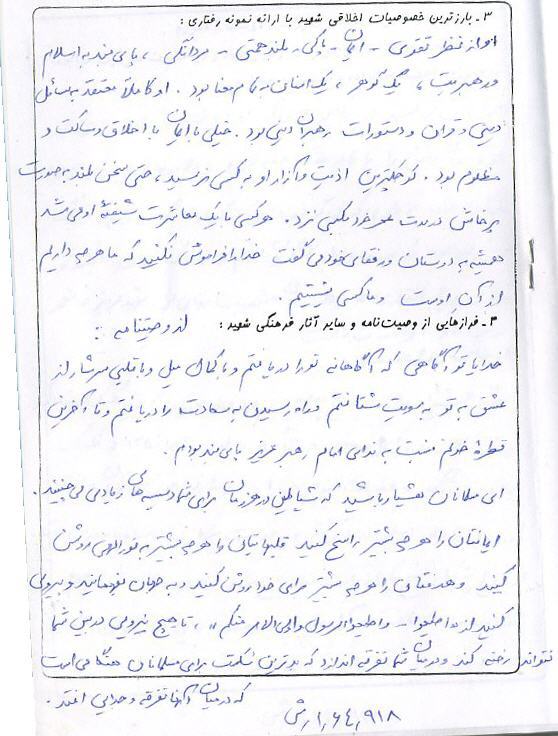 ۳- بارزترین خصوصیات اخلاقی شهید با ارائه نمونه رفتاری :
او از نظر تقوی - ایمان - پاکی - بلند همتی - مردانگی ، پای بند به اسلام
و رهبریت ، یک گوهر ، یک انسان به تمام معنا بود . او کاملاً معتقد به مسائل
دینی و قرآن و دستورات رهبران دینی بود . خیلی با ایمان با اخلاق و ساکت و
مظلوم بود . کوچکترین اذیت و آزار او به کسی نرسید ، حتی سخن بلند به صورت
پرخاش در مدت عمر خود بکسی نزد . هر کسی با یک معاشرت شیفتهٔ او می شد
همیشه به دوستان و رفقای خود می گفت خدا را فراموش نکنید که ما هر چه داریم
از آن اوست و ما کسی نیستیم .
۴- فرازهایی از وصیت نامه و سایر آثار فرهنگی شهید : از وصیتنامه :
خدایا تو آگاهی که آگاهانه تو را دریافتم و با کمال میل و با قلبی سرشار از
عشق به تو به سویت شتافتم و راه رسیدن به سعادت را دریافتم و تا آخرین
قطرهٔ خونم نسبت به ندای امام رهبر عزیز پای بند بودم .
ای مسلمانان هشیار باشید که شیاطین در هر زمان برای شما دسیسه های زیادی می چینند .
ایمانتان را هر چه بیشتر راسخ کنید قلبهایتان را هر چه بیشتر به نور الهی روشن
کنید و هدفتان را هر چه بیشتر برای خدا روشن کنید و به جهان بفهمانید و پیروی
کنید از « اطیعوا - و اطیعوا الرسول و اولی الامر منکم » ، تا هیچ نیرویی در بین شما
نتواند رخنه کند و در میان شما تفرقه اندازد که بدترین شکست برای مسلمانان هنگامی است
که در میان آنها تفرقه و جدایی افتد .
۱٫۶۴٫۹۱۸